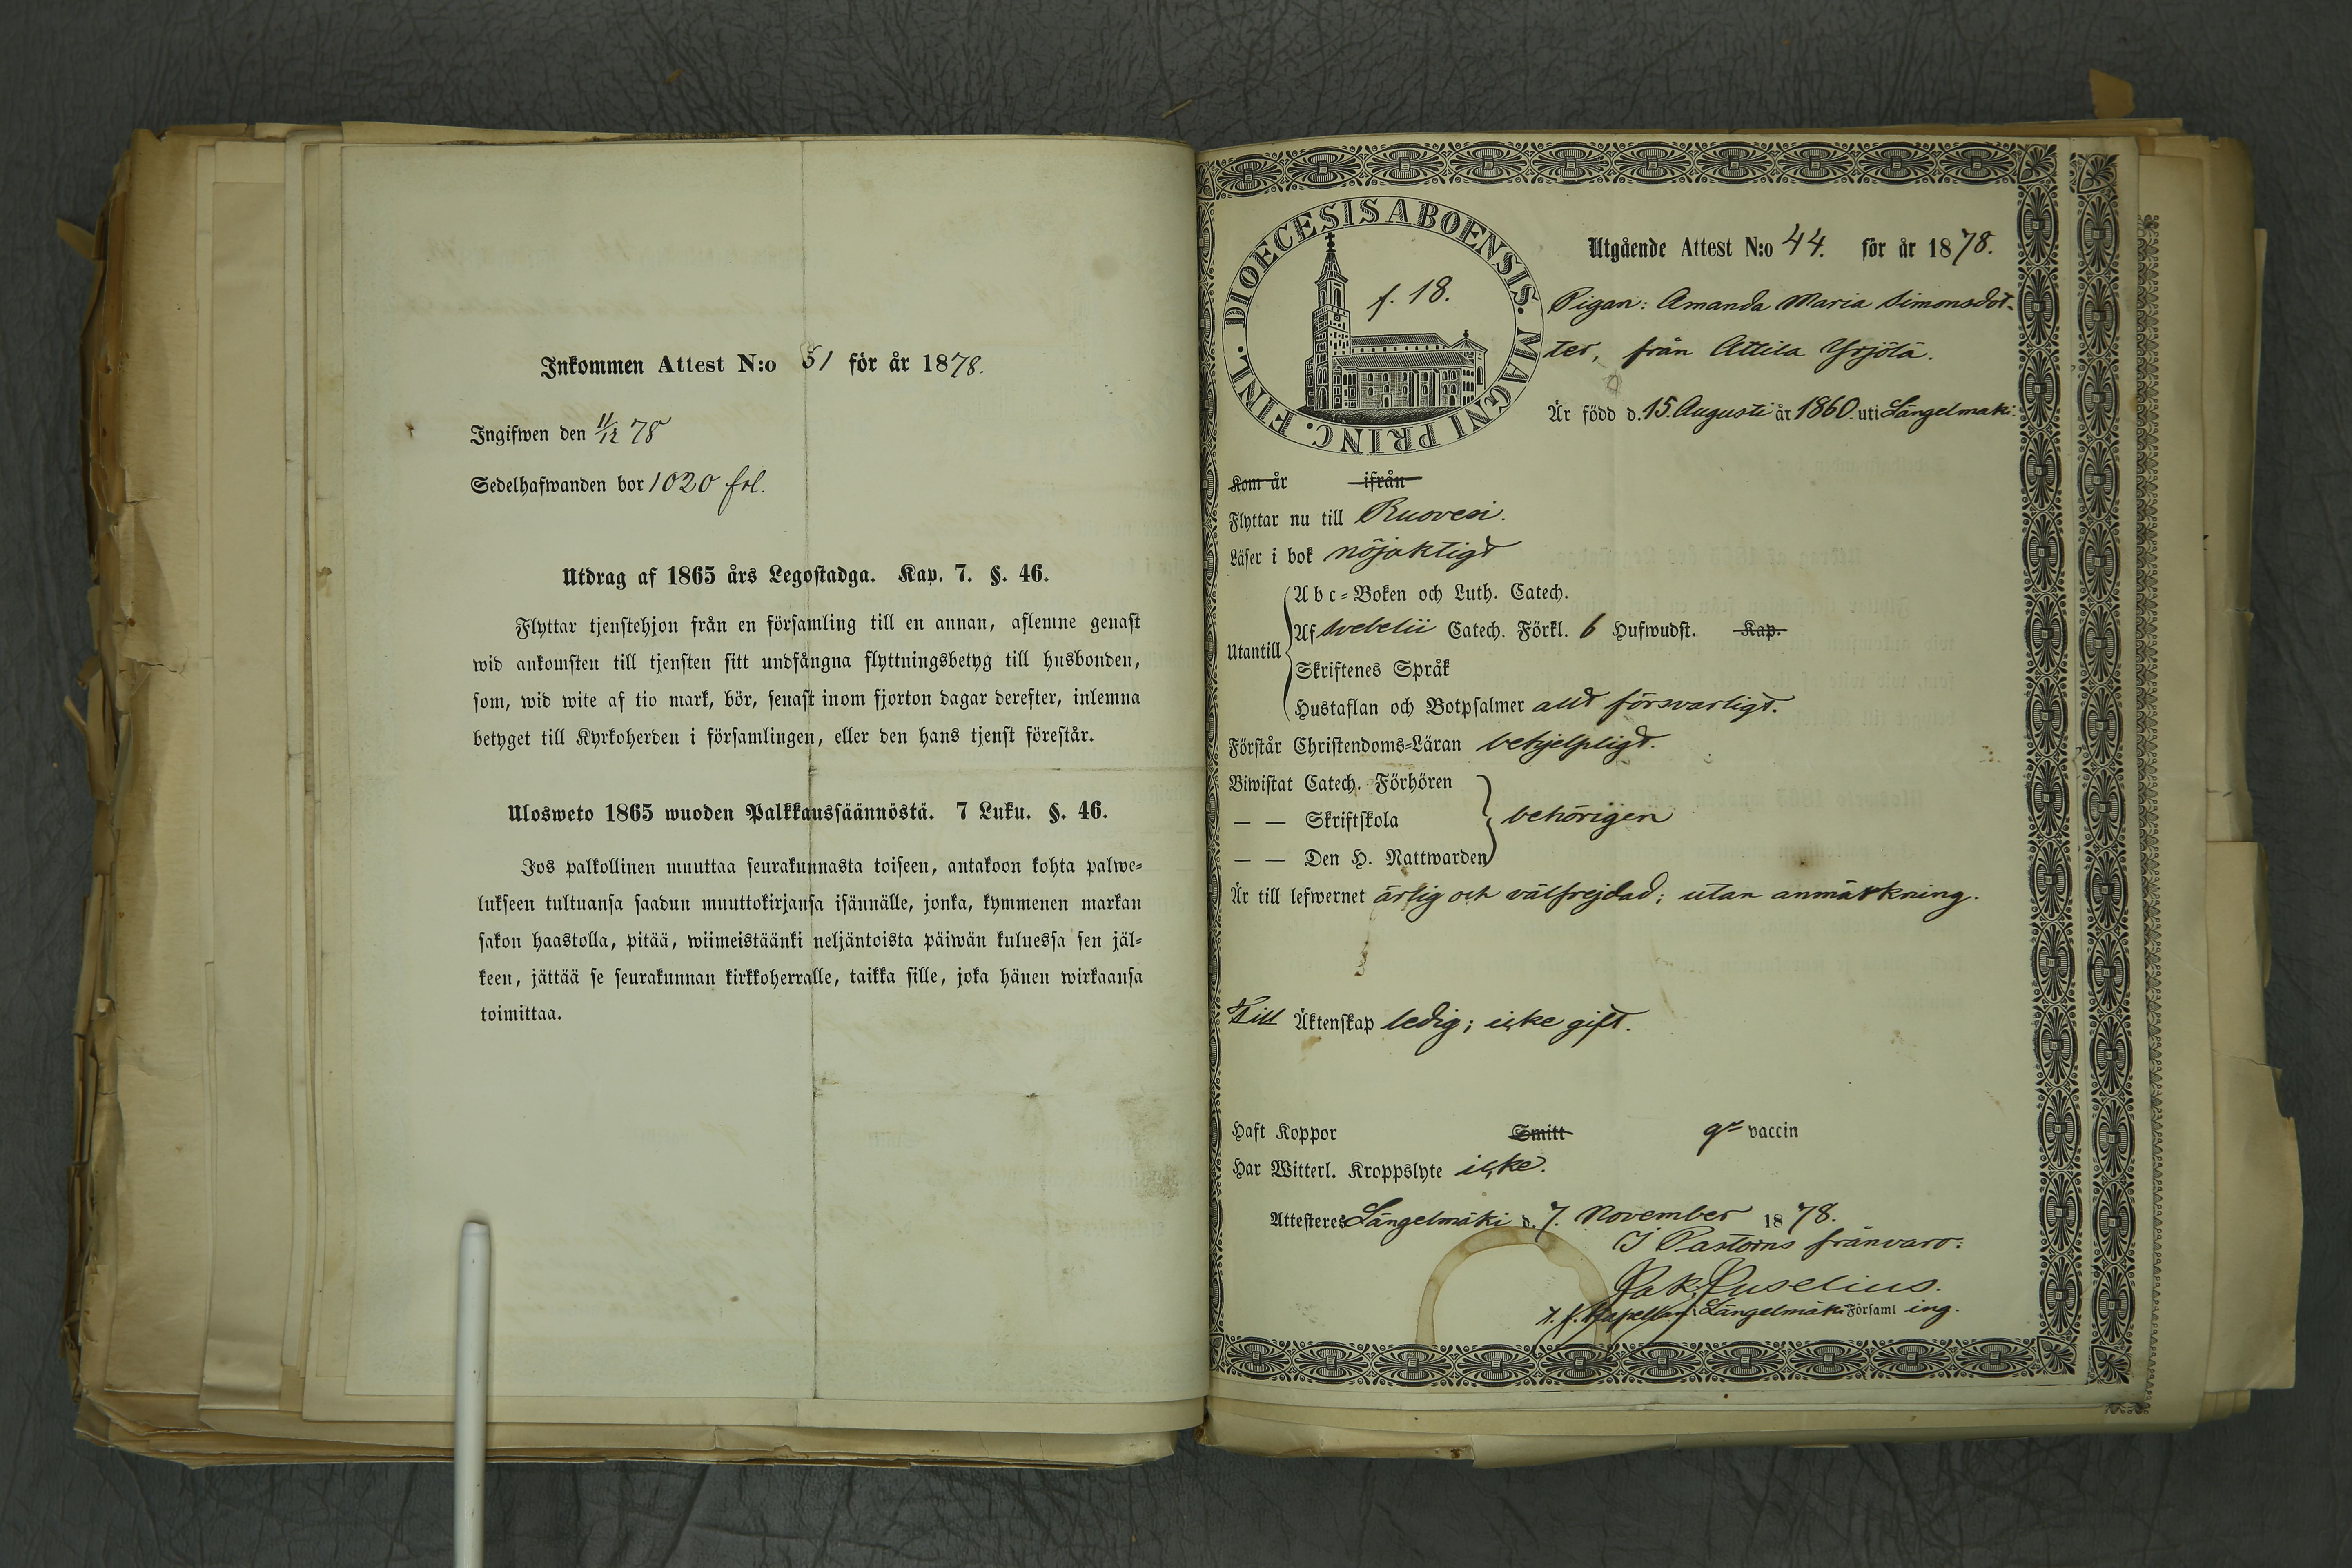 Inkommen Attest N:o 51 för år 1878.
Ingifwen den 11/12 78
Sedelhafwanden bor 1020 fol.
Utdrag af 1865 års Legostadga. Kap. 7. §. 46.
Flyttar tjenstehjon från en församling till en annan, aflemne genast
wid ankomsten till tjensten sitt undfångna flyttningsbetyg till husbonden,
som, wid wite af tio mark, bör, senast inom fjorton dagar derefter, inlemna
betyget till Kyrkoherden i församlingen, eller den hans tjenst förestår.
Ulosweto 1865 wuoden Palkkaussäännöstä. 7 Luku. §. 46.
Jos palkollinen muuttaa seurakunnasta toiseen, antakoon kohta palwe-
lukseen tultuansa saadun muuttokirjansa isännälle, jonka, kymmenen markan
sakon haastolla, pitää, wiimeistäänki neljäntoista päiwän kuluessa sen jäl-
keen, jättää se seurakunnan kirkkoherralle, taikka sille, joka hänen wirkaansa
toimittaa.
DIOECESIS ABOENSIS. MAGNI PRINC. FINL.
f. 18.
Utgående Attest N:o 44. för år 1878.
Pigan: Amanda Maria Simonsdot-
ter, från Attila Yrjölä.
Är född d. 15. Augusti år 1860. uti Längelmäki.
Kom år ifrån
Flyttar nu till Ruovesi.
Läser i bok nöjaktigt
Utantill
Abc-Boken och Luth. Catech.
Af Svebelii Catech. Förkl. 6 Hufwudst. Kap.
Skriftenes Språk
Hustaflan och Botpsalmer allt försvarligt.
Förstår Christendoms-Läran behjelpligt.
Biwistat Catech. Förhören
— — Skriftskola behörigen
— — Den H. Nattwarden
Är till lefwernet ärlig och välfrejdad; utan anmärkning.
Till Äktenskap ledig; icke gift.
Haft Koppor Smitt gr vaccin
Har Witterl. Kroppslyte icke.
Attesteres Längelmäki d. 7. November 1878.
I Pastorns frånvaro:
Jak. Juselius.
t. f. Kapellan i Längelmäki Församl ing.